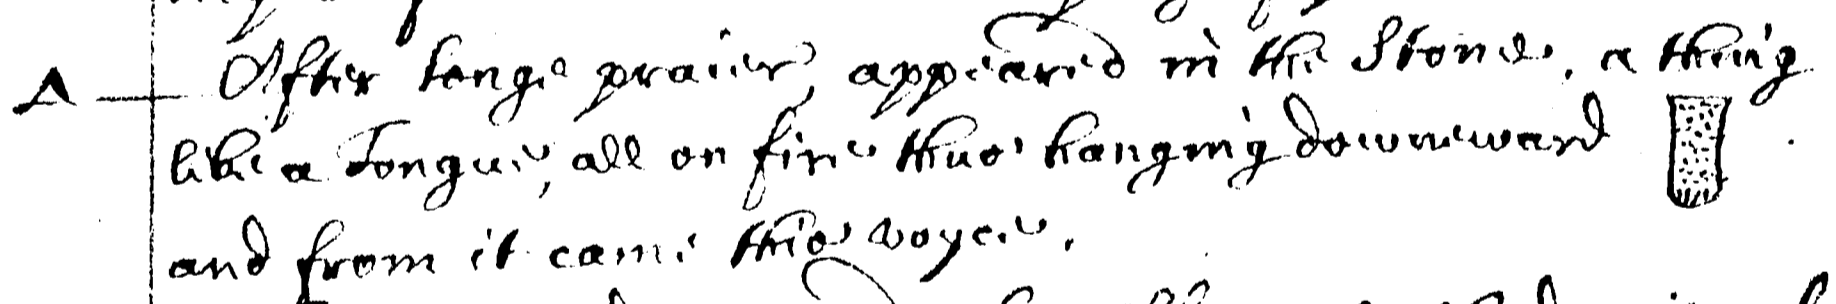 Δ After longe praier, appeared in the Stone, a thing
like a Tongue, all on fire thus hanging downeward
and from it came this voyce.